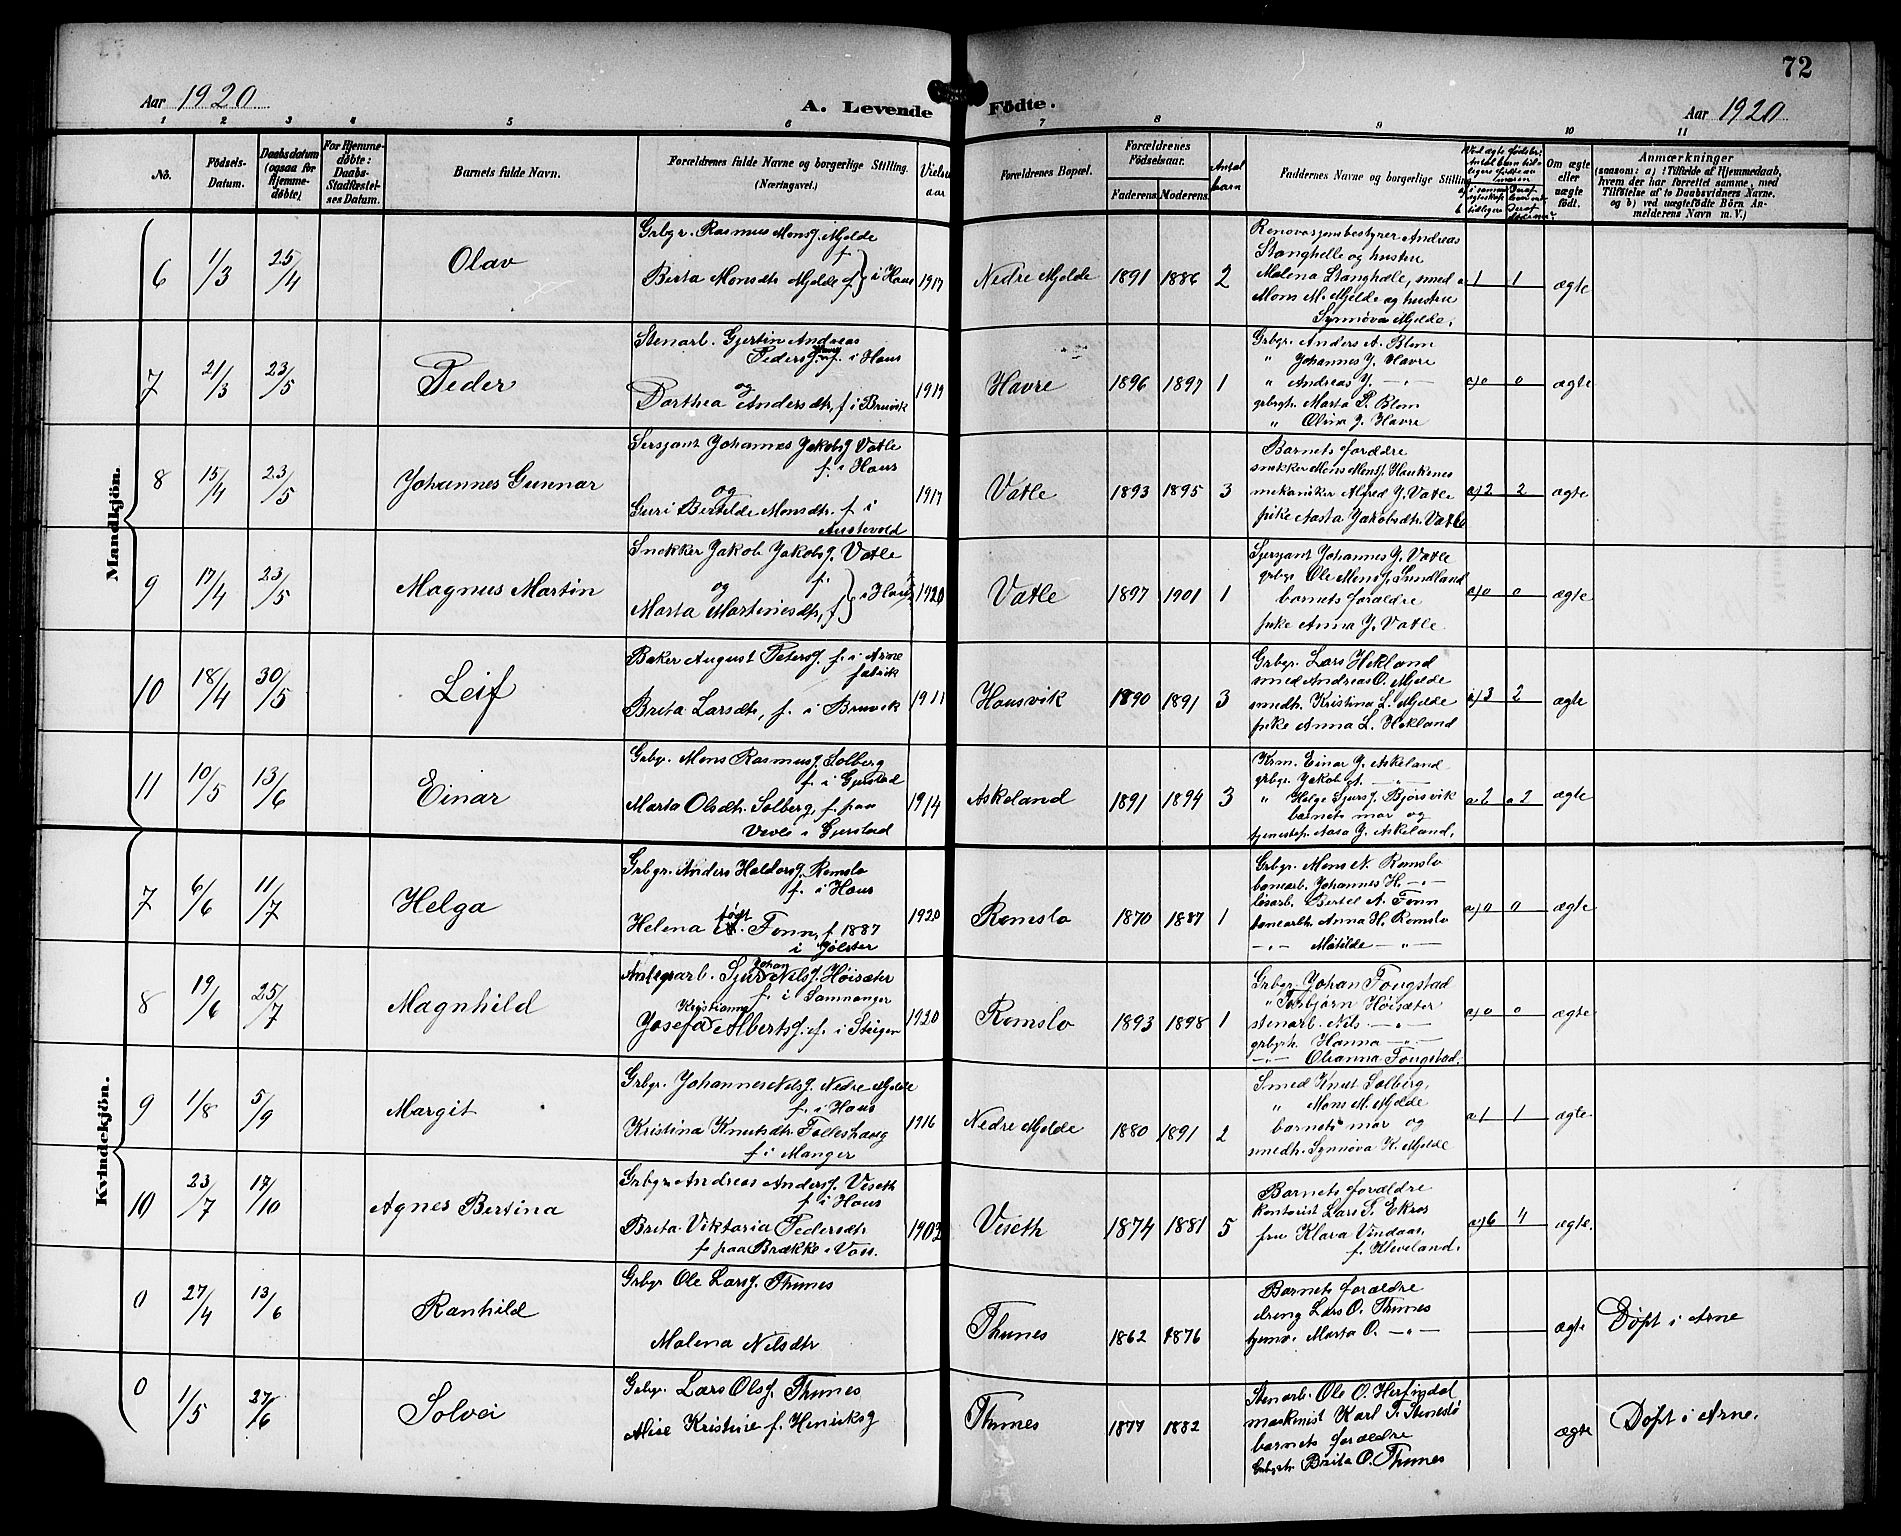 72
Aar 1920
A. Levende Fødte.
Aar 1920
1 2 3 4 5 6 7 8 9 10 11
No.
Fødsels-Datum.
Daabsdatum (ogsaa for Hjemmedøbte)
For Hjemmedøbte: Daabs-Stadfæstelses Datum.
Barnets fulde Navn.
Forældrenes fulde Navne og borgerlige Stilling.
(Næringsvei.)
Vielsesaar
Forældrenes Bopæl.
Forældrenes Fødselsaar.
Faderens. Moderens.
Antal barn
Faddernes Navne og borgerlige Stilling
Om ægte eller uægte født.
Anmærkninger
(saasom: a) i Tilfælde af Hjemmedaab,
hvem der har forrettet samme, med
Tilføielse af to Daabsvidners Navne.
og b) ved uægtefødte Børn Anmelderens Navn m. V.)
Mandkjön.
6 1/3 25/4 Olav
Grbgr. Rasmus Monsf. Mjelde f.
Berta Monsdtr. Mjelde f. } i Haus 1917
Nedre Mjelde 1891 1886 2
Renovasjonsbestyrer Andreas
Stanghelle og hustru
Malena Stanghelle, smed
Mons M. Mjelde og hustru
Synnøva Mjelde.
1 1 ægte
7 21/3 23/5 Peder
Stenarb. Gjertin Andreas
Pedersf. Havre f. i Haus
og
Dorthea Andersdtr. f. i Bruvik 1919
Havre 1896 1897 1
Grbgr. Anders A. Blom
" Johannes J. Havre
" Andreas J. -"-
grbrgh. Marta P. Blom
" Olina J. Havre
a) 0 0 ægte
8 15/4 23/5 Johannes Gunnar
Sersjant Johannes Jakobsf Vatle
f. i Haus
og
Guri Bertilde Monsdtr. f. i
Austevold 1917
Vatle 1893 1895 3
Barnets forældre
snekker Mons Monsf. Haukenes
mekaniker Alfred J. Vatle
pike Aasta Jakobsdtr Vatle
a) 2 2 ægte
9 17/4 23/5 Magnus Martin
Snekker Jakob Jakobsf. Vatle
og f.
Marta Martinesdtr, f. } i Haus 1920
Vatle 1897 1901 1
Sjersjant Johannes J. Vatle
grbgr Ole Monsf. Sundland
barnets forældre
pike Anna J. Vatle
a) 0 0 ægte
10 18/4 30/5 Leif
Baker August Petersf. f. i Arne
fabrik
Brita Larsdtr, f. i Bruvik 1911
Hausvik 1890 1891 3
Grbgr. Lars Hekland
smed Andreas O. Mjelde
smedh. Kristina L. Mjelde
pike Anna L. Hekland
a) 3 2 ægte
11 10/5 13/6 Einar
Grbgr. Mons Rasmusf. Solberg
f. i Gjerstad
Marta Olsdtr. Solberg, f. paa
i Gjerstad 1914
Askeland 1891 1894 3
Krm. Einar J. Askeland
grbgr. Jakob A. -"-
" Helge Sjursf. Bjørsvik
barnets mor og
tjenestep. Aasa J. Askeland.
a 2 a 2 ægte
Kvindekjön.
7 6/6 11/7 Helga
Grbgr. Anders Haldorsf. Romslo
f. i Haus
født
Helena Fonn, f. 1887
i Jølster 1920
Romslo 1870 1887 1
Grbgr. Mons N. Romslo
banearb. Johannes H. -"-
løsarb. Bertel A. Fonn
banearbh. Anna H. Romslo
-"- Matilde -"-
a) 0 0 ægte
8 19/6 25/7 Magnhild
Anlegsarb. Sjur Johan Nilsf. Høisæter
f. i Samnanger
Kristianne
Josefa Albertsf. f. i Steigen 1920
Romslo 1893 1898 1
Grbgr. Johan Tougstad
" Torbjørn Høisæter
stenarb. Nils -"-
grbgrh. Hanna -"-
-"- Olianna Tougstad.
a) 0 0 ægte
9 1/8 5/9 Margit
Grbgr. Johannes Nilsf. Nedre Mjelde
f. i Haus
Kristina Knutsdtr. Tolleshaug
f. i Manger 1916
Nedre Mjelde 1880 1891 2
Smed Knut Solberg,
" Mons M. Mjelde
barnets mor og
smedh. Synnøva K. Mjelde
a) 1 1 ægte
10 23/7 17/10 Agnes Bertina
Grbgr Andreas Andersf. Viseth
f. i Haus
Brita Viktoria Pedersdtr
f. paa Brække i Voss. 1902
Viseth 1874 1881 5
Barnets forældre
kontorist Lars T. Ekros
fru Klara Vindaas,
f. Kleveland.
a) 6 4 ægte.
0 27/4 13/6 Ranhild
Grbgr Ole Larsf. Thunes
Malena Nilsdtr
Thunes 1862 1876
Barnets forældre
dreng Lars O. Thunes
Marta O. -"-
ægte Døpt i Arne
0 1/5 27/6 Solvei
Grbgr. Lars Olsf. Thunes
Alise Kristine f. Henriksf
Thunes 1877 1882
Stenarb. Ole O. Herfindal
maskinist Karl T. Stenestø
barnets forældre
Grbgrh. Brita O. Thunes
ægte Døpt i Arne.